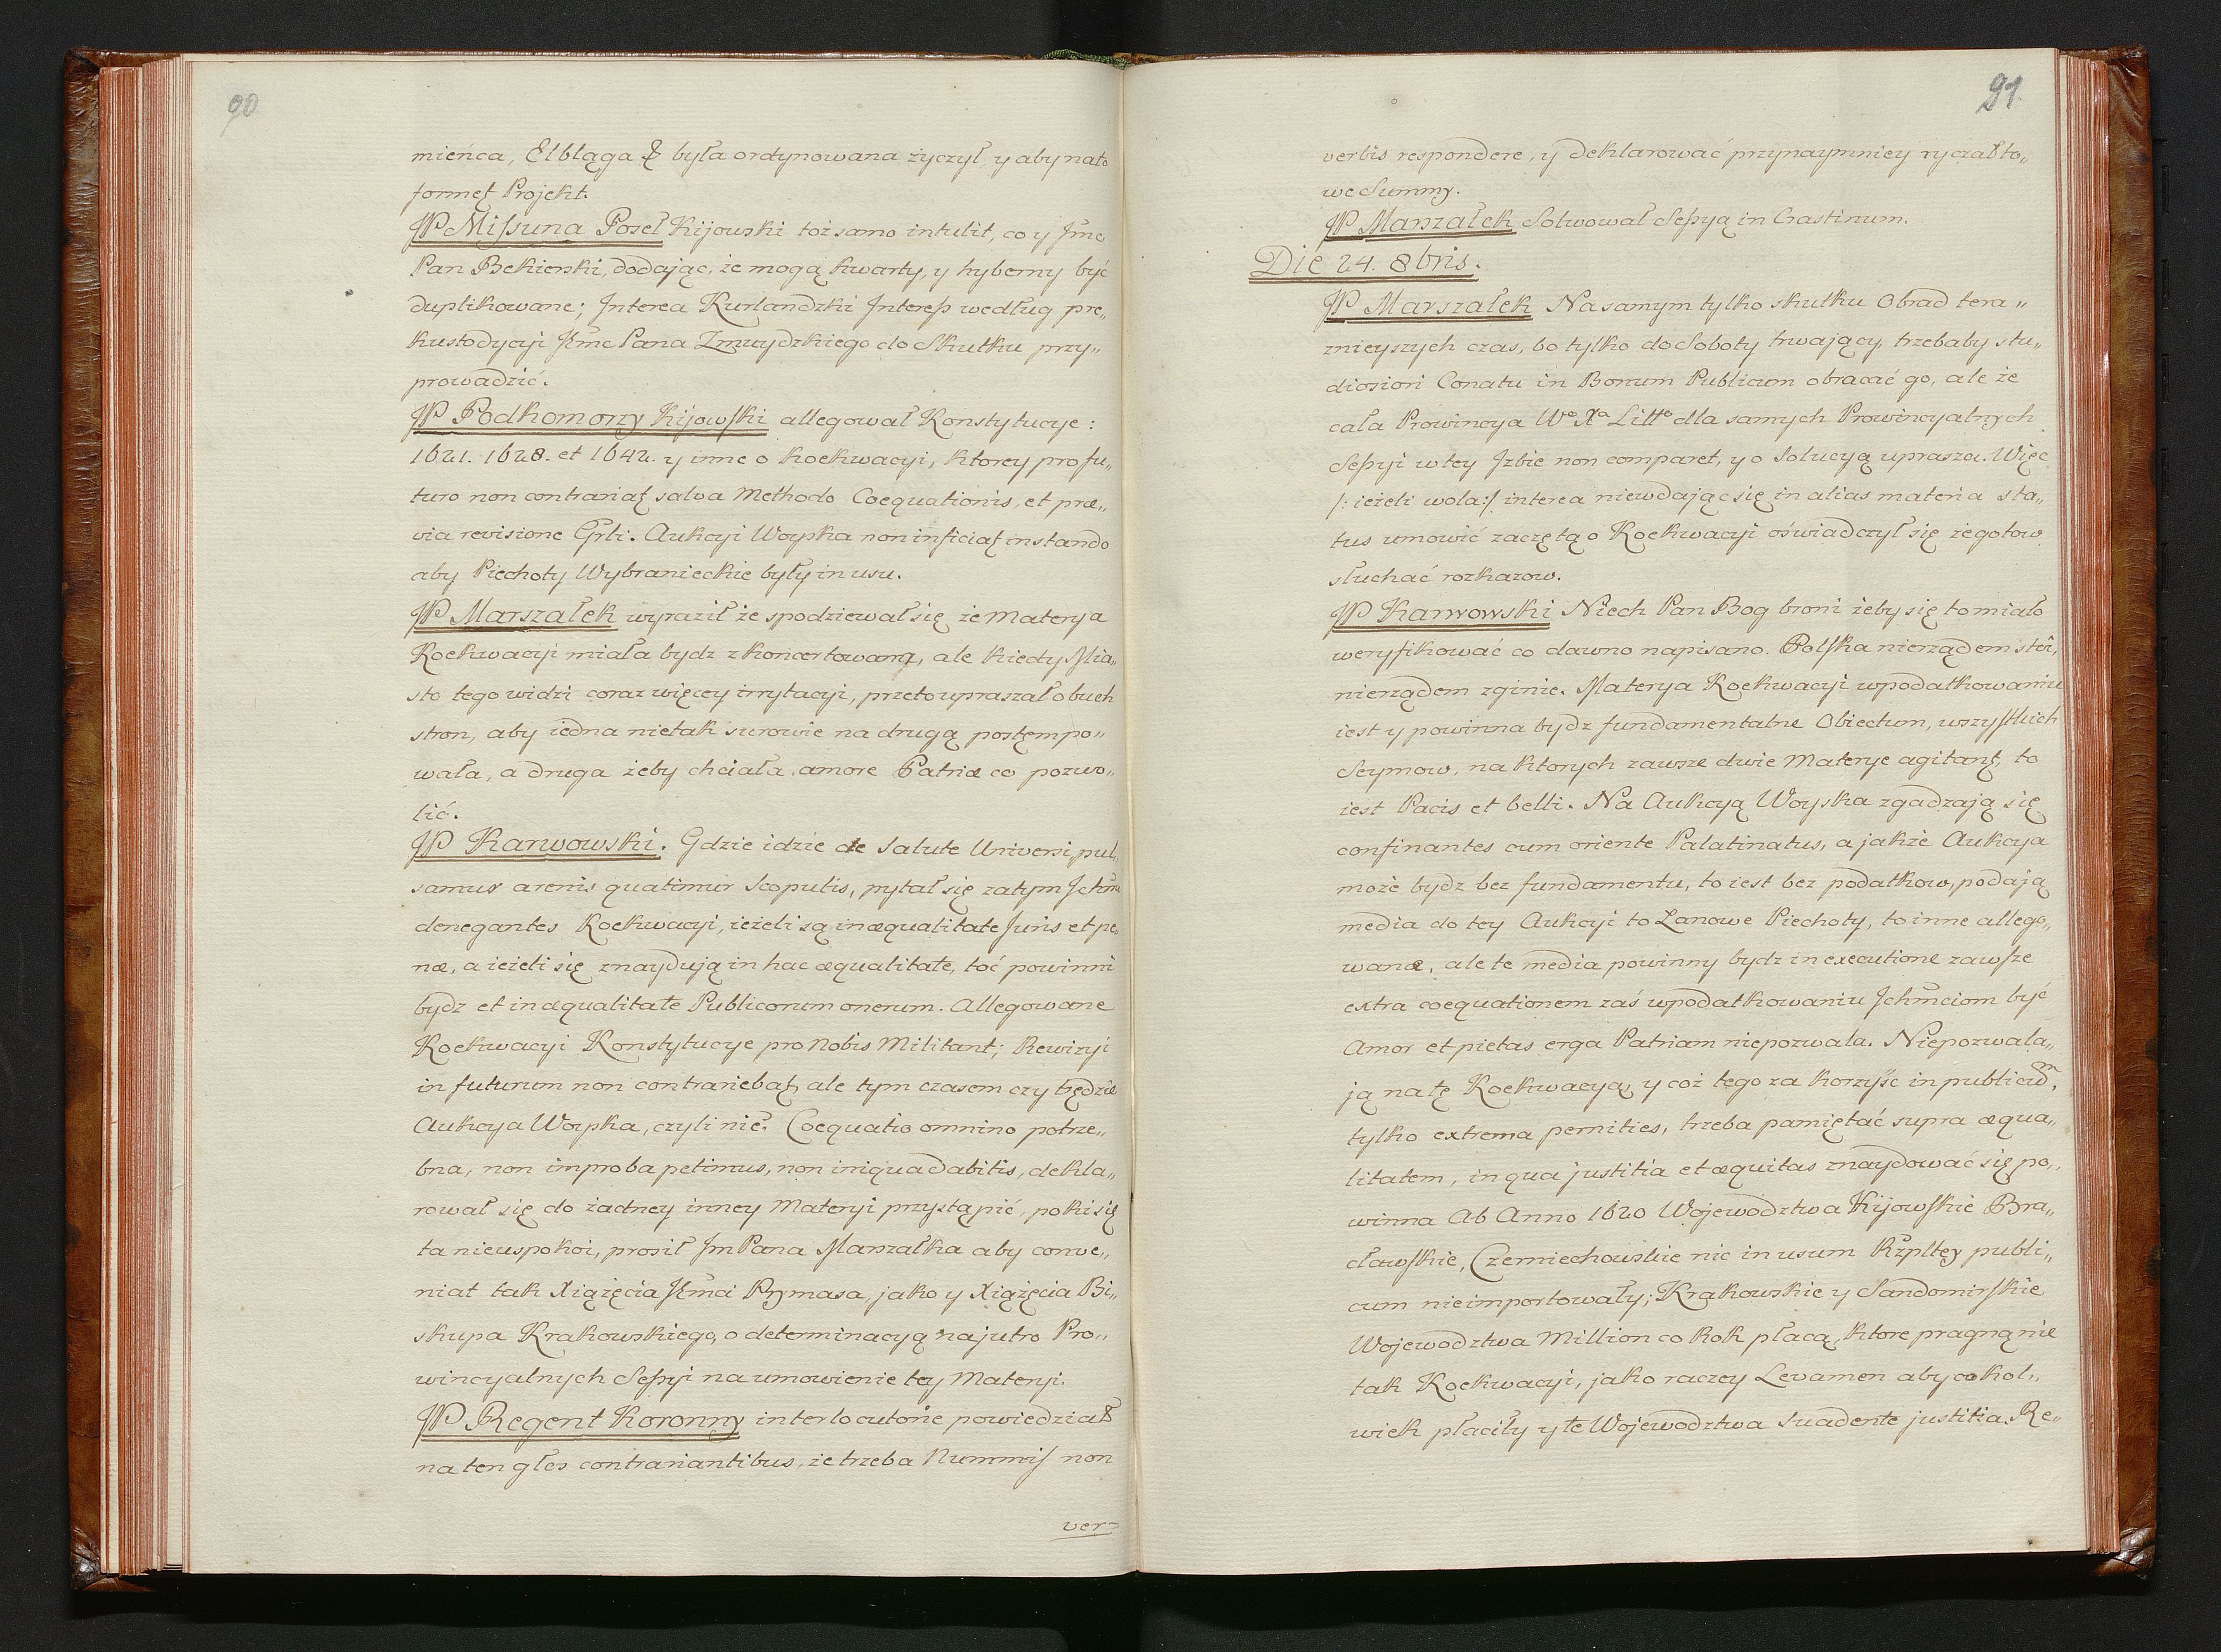 90
mieńca, Elbląga & była ordynowana życzył, y aby nato
formeţ Projekt.
JP Missuna Poseł Kijowski toż samo intulit, co y Jmć
Pan Bekierski, dodając, że mogą kwarty, y hyberny być
duplikowane; Interea Kurlandzki Interess według pre„
kustodycyi Jmć Pana Zmuydzkiego do Skutku przy„
prowadzić.
JP Podkomorzy Kijowski allegował Konstytucye:
1621. 1628. et 1642. y inne o Koekwacyi, ktorey pro fu„
turo non contrariaţ salva Methodo Coequationis, et præ„
via revisione Grli. Aukcyi Woyska non inficiaţ instando
aby Piechoty Wybranieckie były in usu.
JP Marszałek wyraził że spodziewał się że Materya
Koekwacyi miała bydz zkoncertowaną, ale kiedy Mia„
sto tego widzi coraz więcey irrytacyi, przeto upraszał obuch
stron, aby iedna nietak surowie na drugą postęmpo„
wała, a druga żeby chciała amore Patriæ co pozwo„
lić.
JP Karwowski. Gdzie idzie de Salute Universi, pul„
samur arenis quatimur Scopulis, pytał się zatym Ichmć
denegantes Koekwacyi, ieżeli są in æqualitate Juris et pe„
næ, a ieżeli się znaydują in hac æqualitate, toć powinni
bydz et in æqualitate Publicorum onerum. Allegowane
Koekwacyi Konstytucye pro Nobis Militant; Rewizyi
in futurum non contrariebaţ, ale tym czasem czy będzie
Aukcya Woyska, czyli nie? Coequatio omnino potrze„
bna, non improba petimus, non iniqua dabitis, dekla„
rował się do żadney inney Materyi przystąpić, poki się
ta nieuspokoi, prosił Jm Pana Marszałka aby conve„
niat tak Xiążęcia Jmci Prymasa, jako y Xiążęcia Bi„
skupa Krakowskiego, o determinacyą najutro Pro„
wincyalnych Sessyi na umowienie tey Materyi.
JP Regent Koronny interlocutorie powiedział
na ten głos contrariantibus, że trzeba Nummis non
ver=
91
verbis respondere, y deklarować przynaymniey ryczałto„
we Summy.
JP Marszałek Solwował Sessyą in Crastinum.
Die 24. 8bris.
JP Marszałek Na samym tylko skutku Obrad tera„
znieyszych czas, bo tylko do Soboty trwający, trzebaby stu„
diosiori Conatu in Bonum Publicum obracać go, ale że
cała Prowincya Wo Xa Litto dla samych Prowincyalnych
Sessyi w tey Izbie non comparet, y o Solucyą uprasza. Więc
/: ieżeli wola :/ interea niewdając się in alias materia sta„
tus umowić zaczętą o Koekwacyi oświadczył się że gotow
słuchać rozkazow.
JP Karwowski Niech Pan Bog broni żeby się to miało
weryfikować co dawno napisano. Polska nierządem stoi,
nierządem zginie. Materya Koekwacyi w podatkowaniu
iest y powinna bydz fundamentalne Obiectum, wszystkich
Seymow, na ktorych zawsze dwie Materye agitanţ, to
iest Pacis et belli. Na Aukcyą Woyska zgadzają się
confinantes cum oriente Palatinatus, a jakże Aukcya
może bydz bez fundamentu, to iest bez podatkow, podają
media do tey Aukcyi to Łanowe Piechoty, to inne allego„
wane, ale te media powinny bydz in executione zawsze
extra coequationem zaś w podatkowaniu Ichmciom być
Amor et pietas erga Patriam niepozwala. Niepozwala„
ją na tę Koekwacyą, y coż tego za korzyść in publicum,
tylko extrema pernities, trzeba pamiętać supra æqua„
litatem, in qua justitia et æquitas znaydować się po„
winna Ab Anno 1620 Wojewodztwa Kijowskie Bra„
cławskie, Czerniechowskie nic in usum Rzpltey publi„
cum nieimportowały; Krakowskie y Sandomirskie
Wojewodztwa Million co Rok płacą, ktore pragną nie
tak Koekwacyi, jako raczey Levamen aby cokol„
wiek płaciły y te Wojewodztwa suadente justitia. Re„